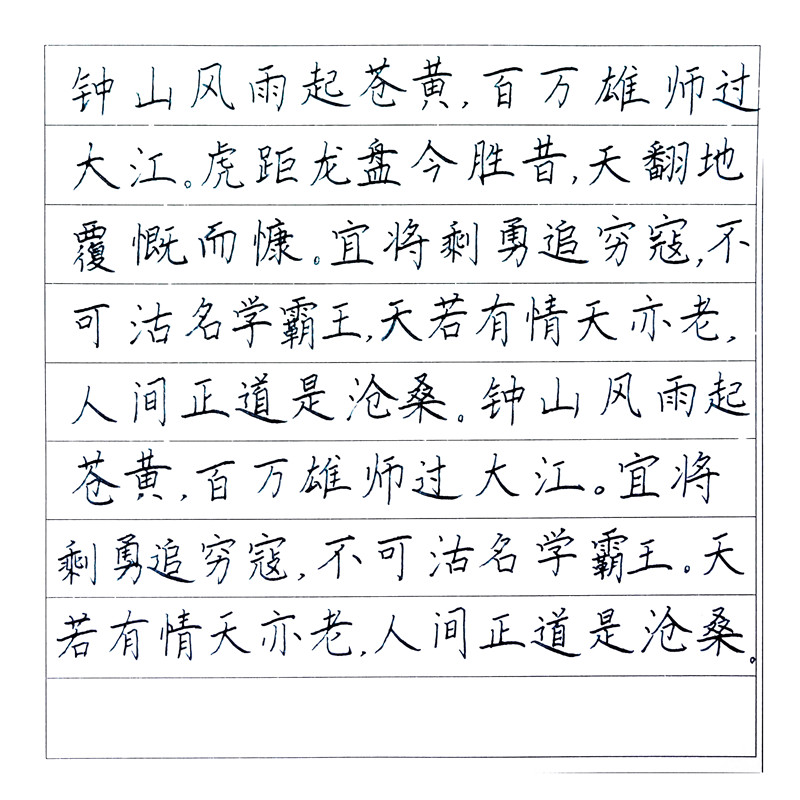 钟山风雨起苍黄,百万雄师过
大江。虎距龙盘今胜昔,天翻地
覆慨而慷。宜将剩勇追穷寇,不
可沽名学霸王,天若有情天亦老,
人间正道是沧桑。钟山风雨起
苍黄,百万雄师过大江。宜将
剩勇追穷寇,不可沽名学霸王。天
若有情天亦老,人间正道是沧桑。